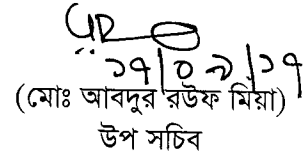 ১৭/০৯/১৭
(মোঃ আবদুর রউফ মিয়া)
উপ সচিব